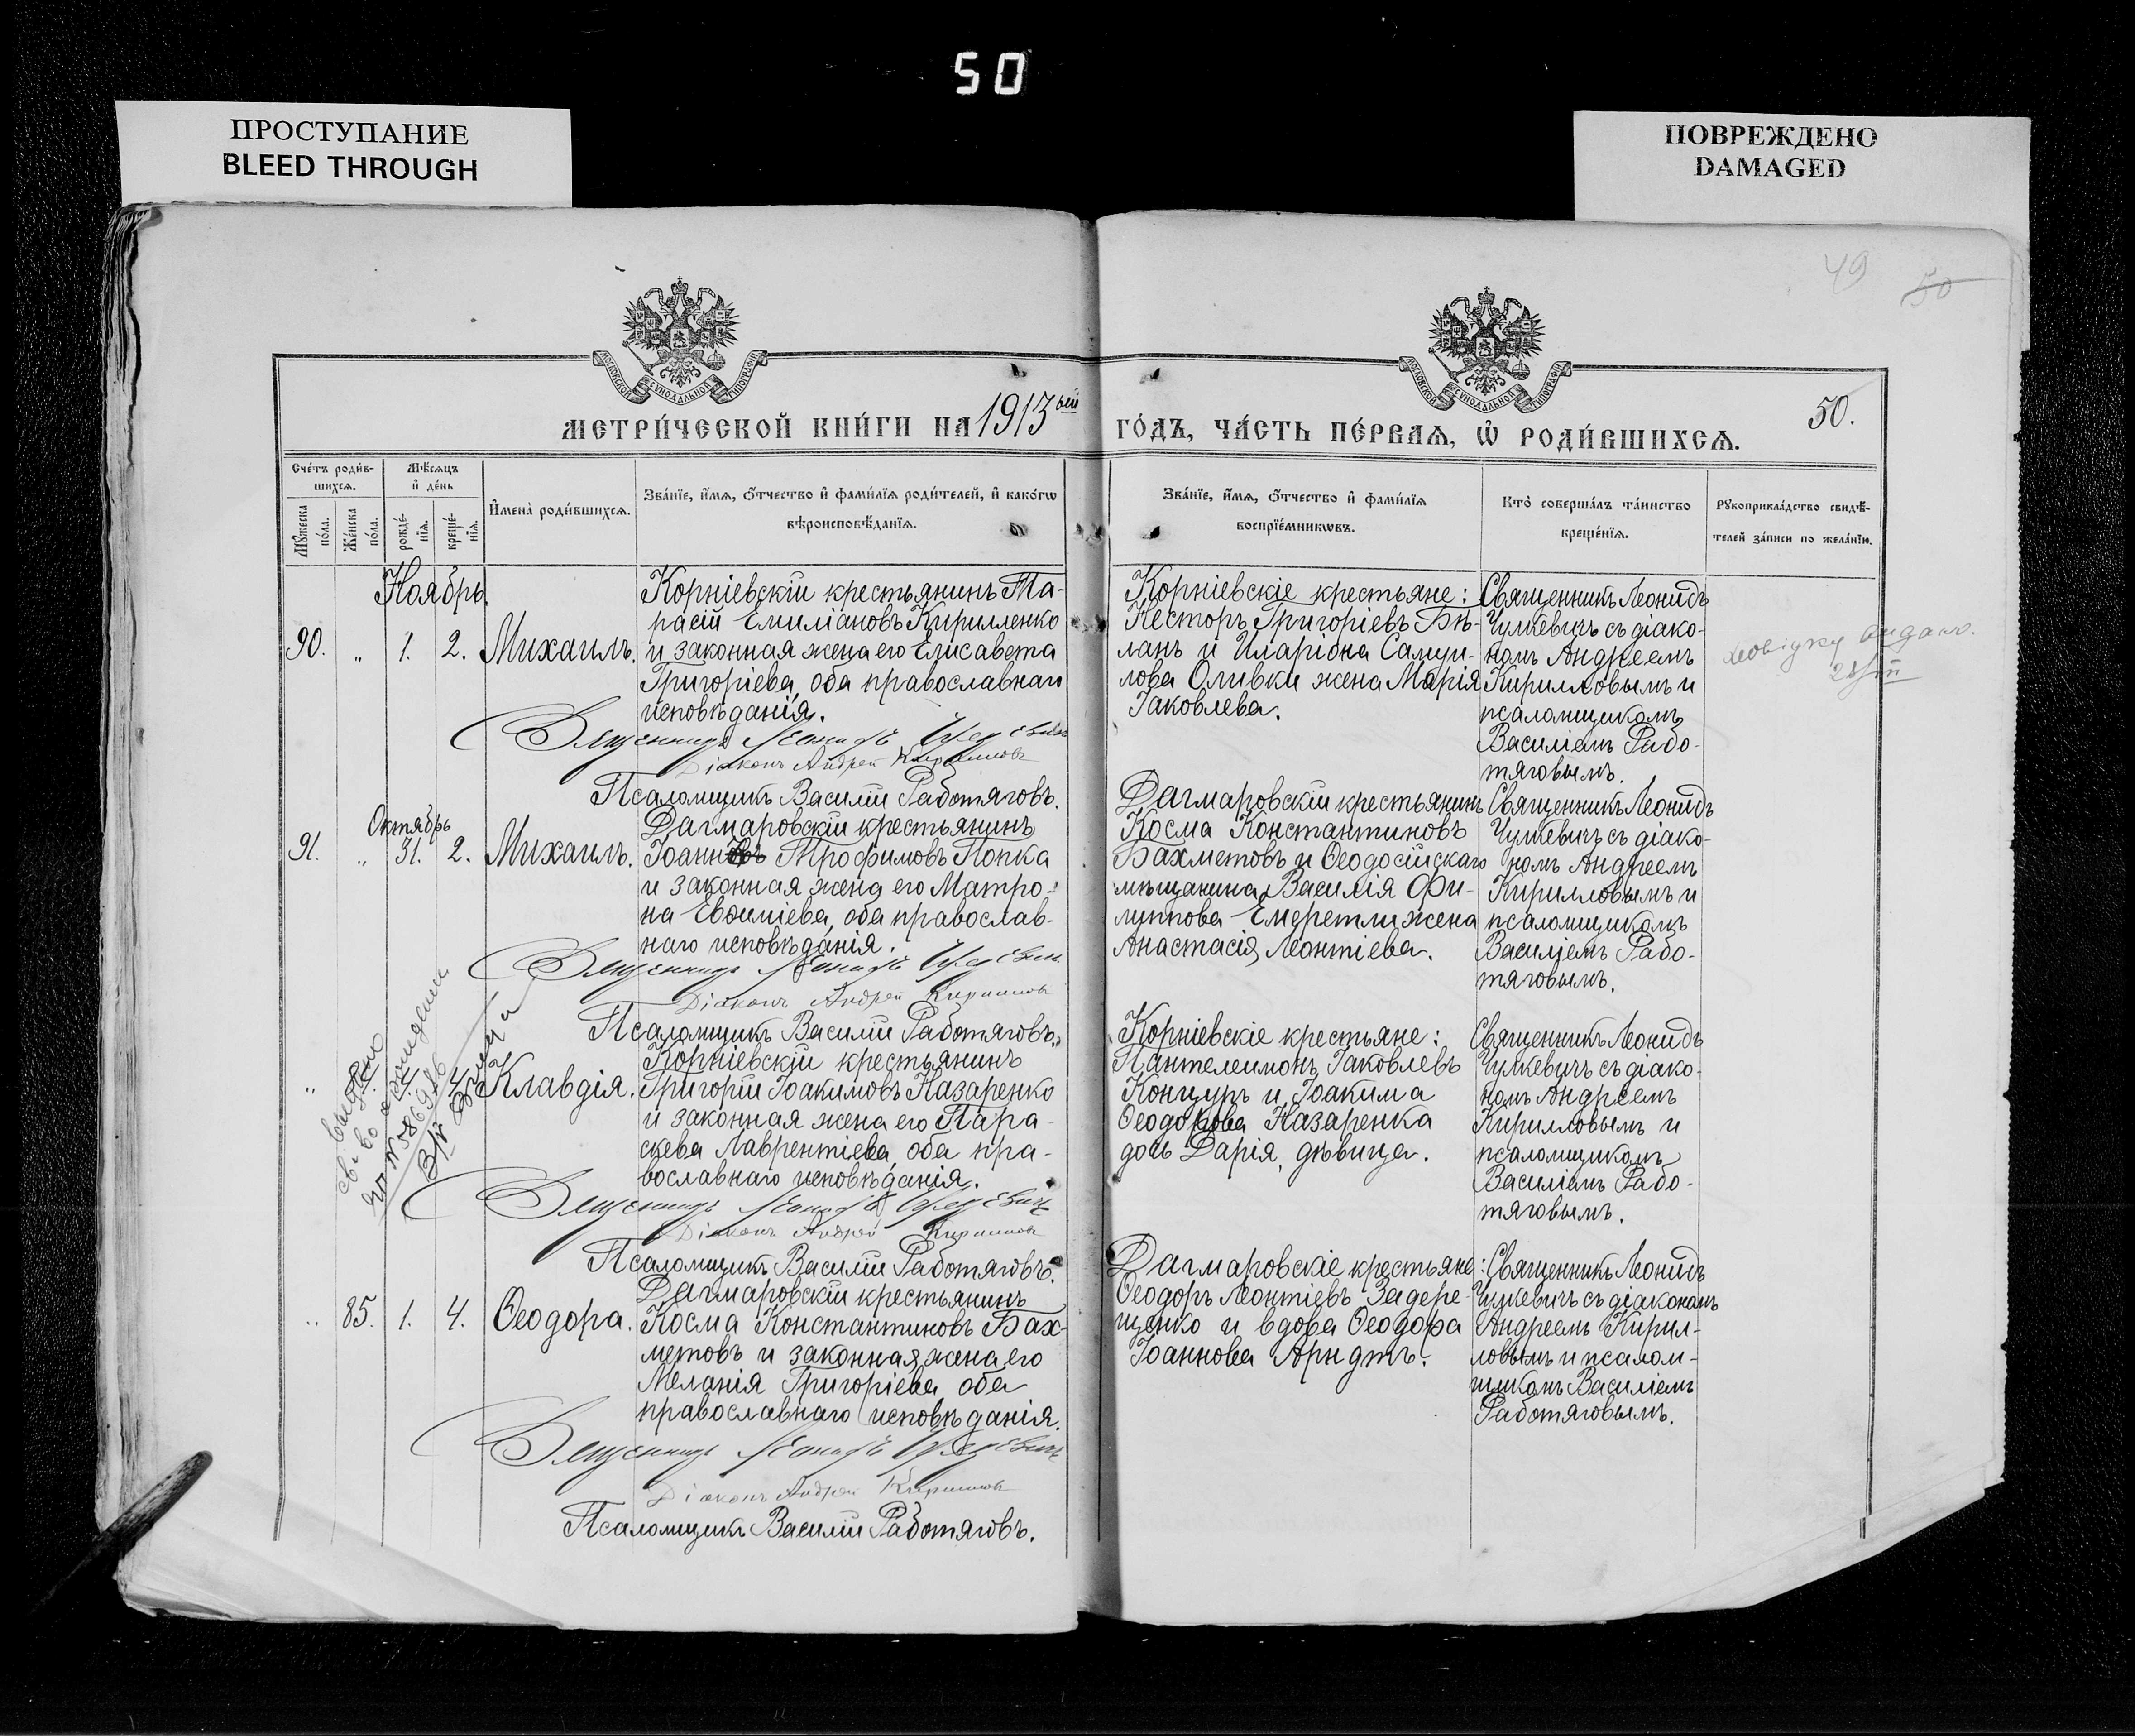 50
ПРОСТУПАНИЕ
BLEED THROUGH
ПОВРЕЖДЕНО
DAMAGED
49
50
МОСКОВСКОЙ СѴНОДАЛЬНОЙ ТИПОГРАФІИ
МОСКОВСКОЙ СѴНОДАЛЬНОЙ ТИПОГРАФІИ
МЕТРИ́ЧЕСКОЙ КНИ́ГИ НА 1913ый
ГО́ДЪ, ЧА́СТЬ ПЕ́РВАЯ, Ѡ҆ РОДИ́ВШИХСЯ.
50.
Сче́тъ роди́в-
шихся.
Мѣ́сяцъ
и҆ де́нь
Му́жеска
по́ла.
Же́нска
по́ла.
рожде́-
нїя.
креще́-
нїя.
И҆мена̀ роди́вшихся.
Зва́нїе, и҆́мя, ѻ҆́тчество и҆ фами́лїя роди́телей, и҆ како́гѡ
вѣроисповѣ́данїя.
Зва́нїе, и҆́мя, ѻ҆́тчество и҆ фами́лїя
воспрїе́мникѡвъ.
Кто̀ соверша́лъ та́инство
креще́нїя.
Рꙋкоприкла́дство свидѣ́-
телей за́писи по жела́нїю.
Ноябрь.
90. „ 1. 2. Михаилъ.
Корніевскій крестьянинъ Та-
расій Емиліановъ Кирилленко
и законная жена его Елисавета
Григоріева, оба православнаго
исповѣданія.
Священникъ Леонидъ Чулкевичъ
Діаконъ Андрей Кирилловъ
Псаломщикъ Василій Работяговъ.
Корніевскіе крестьяне:
Несторъ Григоріевъ Бѣ-
ланъ и Иларіона Самуи-
лова Оливки жена Марія
Іаковлева.
Священникъ Леонидъ
Чулкевичъ съ діако-
номъ Андреемъ
Кирилловымъ и
псаломщикомъ
Василіемъ Рабо-
тяговымъ.
видано.
Октябрь
91. „ 31. 2. Михаилъ.
Дагмаровскій крестьянинъ
Іоаннъ Трофимовъ Попка
и законная жена его Матро-
на Евфиміева, оба православ-
наго исповѣданія.
Священникъ Леонидъ Чулкевичъ
Діаконъ Андрей Кирилловъ
Псаломщикъ Василій Работяговъ.
Дагмаровскій крестьянинъ
Косма Константиновъ
Бахметовъ и Ѳеодосійскаго
мѣщанина Василія Фи-
липпова Емеретли жена
Анастасія Леонтіева.
Священникъ Леонидъ
Чулкевичъ съ діако-
номъ Андреемъ
Кирилловымъ и
псаломщикомъ
Василіемъ Рабо-
тяговымъ.
выдано
св-во о рождении
„ Клавдія.
Корніевскій крестьянинъ
Григорій Іоакимовъ Назаренко
и законная жена его Пара-
скева Лаврентіева, оба пра-
вославнаго исповѣданія.
Священникъ Леонидъ Чулкевичъ
Діаконъ Андрей Кирилловъ
Псаломщикъ Василій Работяговъ.
Корніевскіе крестьяне:
Пантелеимонъ Іаковлевъ
Концуръ и Іоакима
Ѳеодорова Назаренка
дочь Дарія, дѣвица.
Священникъ Леонидъ
Чулкевичъ съ діако-
номъ Андреемъ
Кирилловымъ и
псаломщикомъ
Василіемъ Рабо-
тяговымъ.
„ 85. 1. 4. Ѳеодора.
Дагмаровскій крестьянинъ
Косма Константиновъ Бах-
метовъ и законная жена его
Меланія Григоріева, оба
православнаго исповѣданія.
Священникъ Леонидъ Чулкевичъ
Діаконъ Андрей Кирилловъ
Псаломщикъ Василій Работяговъ.
Дагмаровскіе крестьяне:
Ѳеодоръ Леонтіевъ Задере-
щенко и вдова Ѳеодора
Іоаннова Арндтъ.
Священникъ Леонидъ
Чулкевичъ съ діакономъ
Андреемъ Кирил-
ловымъ и псалом-
щикомъ Василіемъ
Работяговымъ.